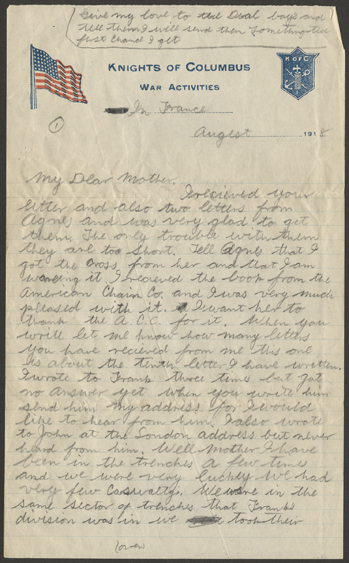 Give my love to the Deal boys and
tell them I will send them something the
first chance I get
KNIGHTS OF COLUMBUS
WAR ACTIVITIES
K OF C
In France
1
Augest 1918
My Dear Mother.
I recieved your
letter and also two letters from
Agnes and was very glad to get
them. The only trouble with them
they are too short. Tell Agnes that I
got the cross from her and that I am
wearing it I recieved the book from the
American Chain Co. and I was very much
pleased with it. I want her to
thank the A.C.C. for it. When you
write let me know how many letters
you have recieved from me this one
is about the tenth letter I have written.
I wrote to Frank three times but got
no answer yet when you write him
send him my address for I would
like to hear from him. I also wrote
to John at the London address but never
heard from him. Well Mother I have
been in the trenches a few times
and we were very luckey we had
very few Casualtys. We were in the
same sector of trenches that Franks
division was in we took their
(over)